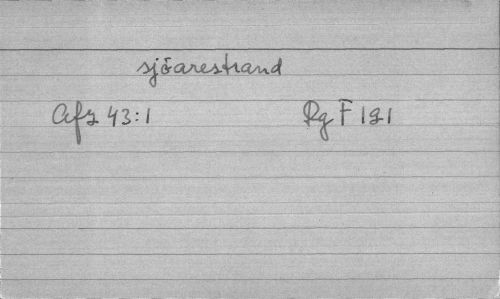 sjöarestrand
Afz 43:1 Rg F 191